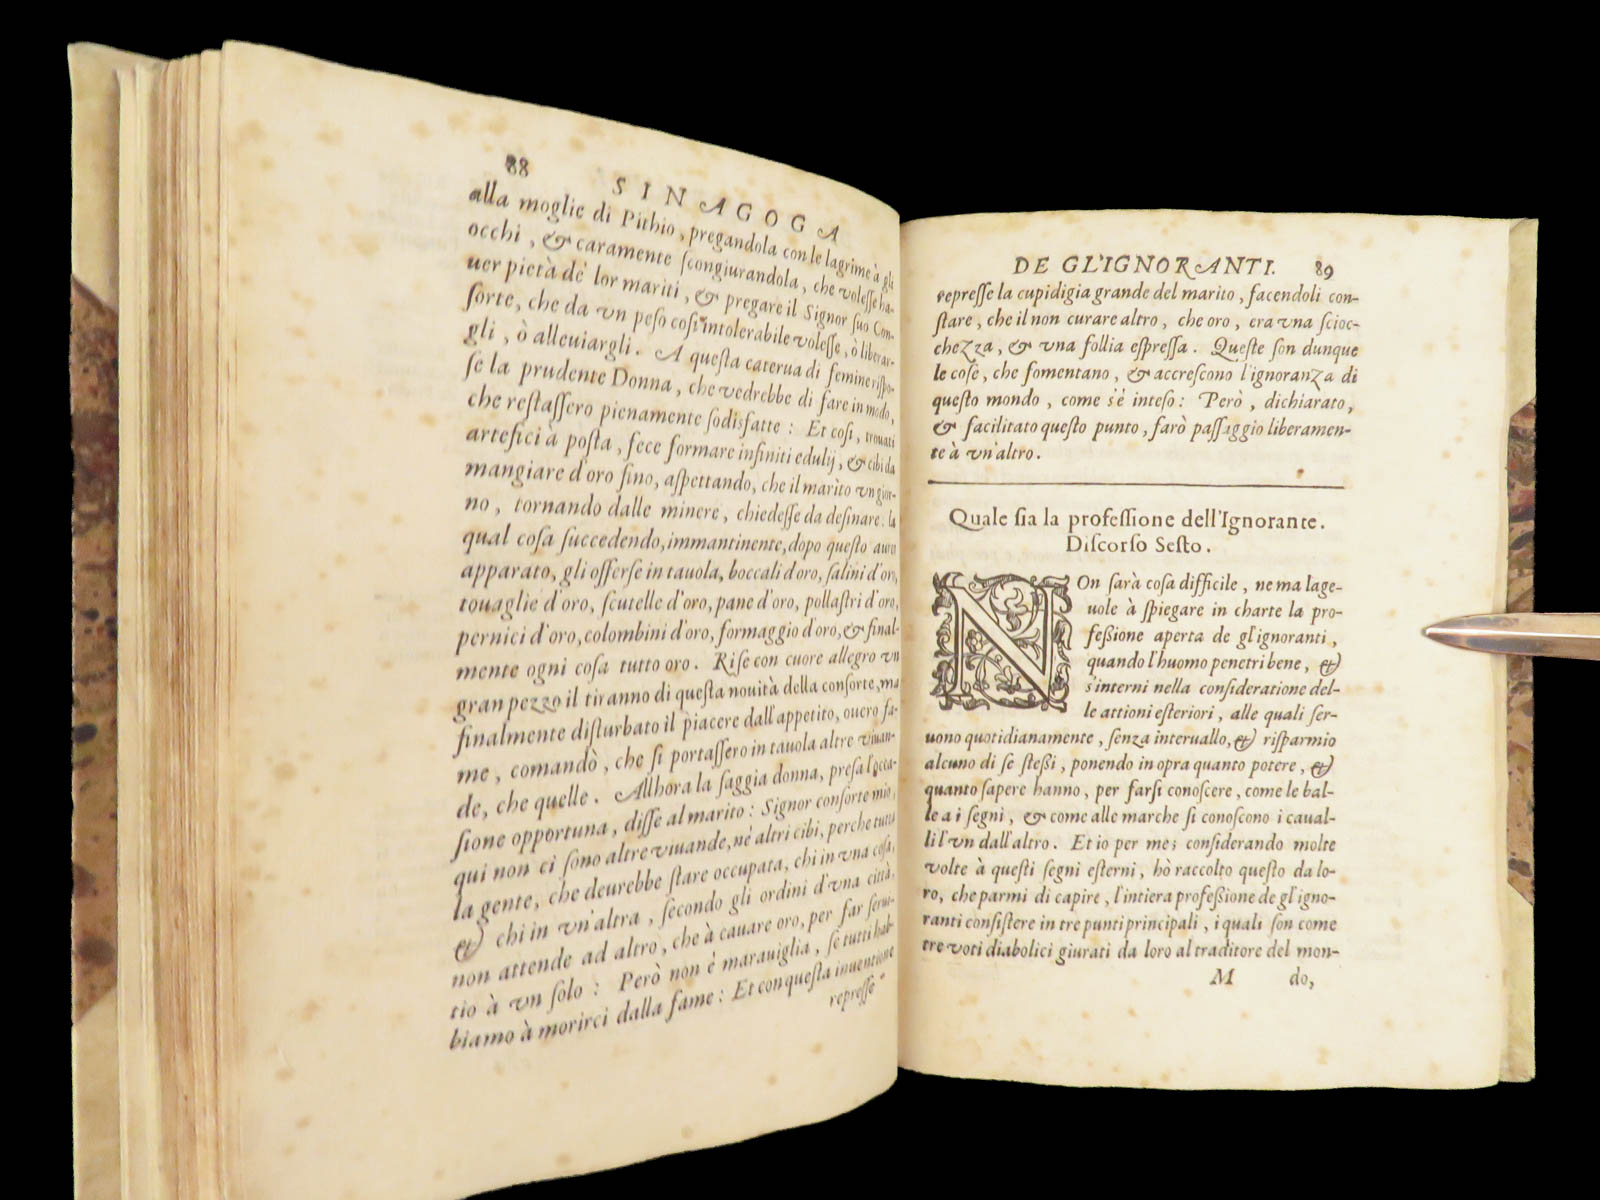 88 SINAGOGA
alla moglie di Pithio, pregandola con le lagrime à gli
occhi, & caramente ſcongiurandola, che voleſſe ha-
uer pietà de' lor mariti, & pregare il Signor ſuo Con-
ſorte, che da vn peſo coſi intolerabile voleſſe, ò liberar-
gli, ò alleuiargli. A queſta caterua di femine riſpo-
ſe la prudente Donna, che vedrebbe di fare in modo,
che reſtaſſero pienamente ſodisfatte: Et coſi, trouati
artefici à poſta, fece formare infiniti edulij, & cibi da
mangiare d'oro fino, aſpettando, che il marito vn gior-
no, tornando dalle minere, chiedeſſe da deſinare. la
qual coſa ſuccedendo, immantinente, dopo queſto auro
apparato, gli offerſe in tauola, boccali d'oro, ſalini d'oro,
touaglie d'oro, ſcutelle d'oro, pane d'oro, pollaſtri d'oro,
pernici d'oro, colombini d'oro, formaggio d'oro, & final-
mente ogni coſa tutto oro. Riſe con cuore allegro vn
gran pezzo il tiranno di queſta nouità della conſorte, ma
finalmente diſturbato il piacere dall'appetito, ouero fa-
me, comandò, che ſi portaſſero in tauola altre viuan-
de, che quelle. Allhora la ſaggia donna, preſa l'occa-
ſione opportuna, diſſe al marito: Signor conſorte mio,
qui non ci ſono altre viuande, nè altri cibi, perche tutta
la gente, che deurebbe ſtare occupata, chi in vna coſa,
& chi in vn'altra, ſecondo gli ordini d'vna città,
non attende ad altro, che à cauare oro, per far ſerui-
tio à vn ſolo: Però non è marauiglia, ſe tutti hab-
biamo à morirci dalla fame: Et con queſta inuentione
repreſſe
DE GL'IGNORANTI. 89
repreſſe la cupidigia grande del marito, facendoli con-
ſtare, che il non curare altro, che oro, era vna ſcioc-
chezza, & vna follia eſpreſſa. Queſte ſon dunque
le coſe, che fomentano, & accreſcono l'ignoranza di
queſto mondo, come s'è inteſo: Però, dichiarato,
& facilitato queſto punto, farò paſſaggio liberamen-
te à vn'altro.
Quale ſia la profeſſione dell'Ignorante.
Diſcorſo Seſto.
NOn ſarà coſa difficile, ne malage-
uole à ſpiegare in charte la pro-
feßione aperta de gl'ignoranti,
quando l'huomo penetri bene, &
s'interni nella conſideratione del-
le attioni eſteriori, alle quali ſer-
uono quotidianamente, ſenza interuallo, & riſparmio
alcuno di ſe ſteßi, ponendo in opra quanto potere, &
quanto ſapere hanno, per farſi conoſcere, come le bal-
le a i ſegni, & come alle marche ſi conoſcono i caual-
li l'vn dall'altro. Et io per me; conſiderando molte
volte à queſti ſegni eſterni, hò raccolto queſto da lo-
ro, che parmi di capire, l'intiera profeßione de gl'igno-
ranti conſiſtere in tre punti principali, i quali ſon come
tre voti diabolici giurati da loro al traditore del mon-
M do,